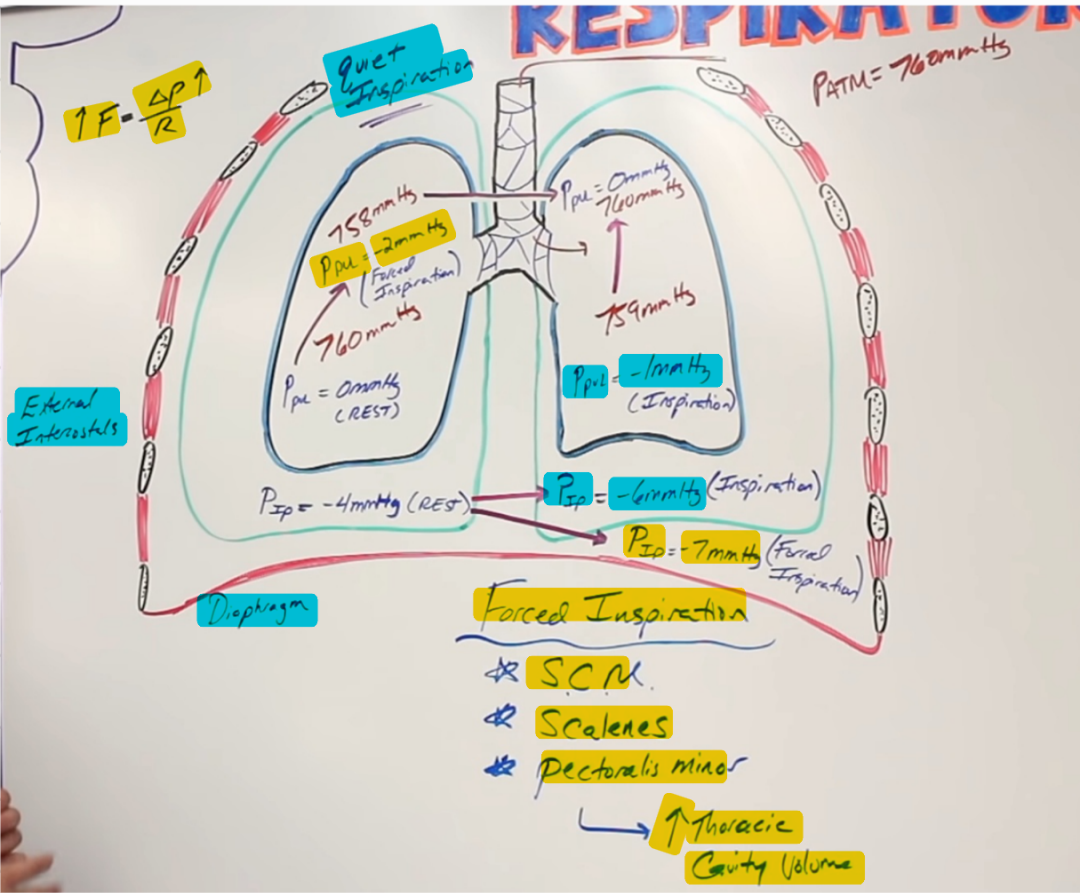 RESPIRATOR
PATM = 760mmHg
↑F = ΔP↑
R
Quiet
Inspiration
758mmHg
Ppul = -2mmHg
(Forced
Inspiration)
760mmHg
Ppul = 0mmHg
(REST)
Ppul = 0mmHg
760mmHg
759mmHg
Ppul = -1mmHg
(Inspiration)
External
Intercostals
PIp = -4mmHg (REST)
PIp = -6mmHg (Inspiration)
PIp = -7mmHg (Forced
Inspiration)
Diaphragm
Forced Inspiration
* S.C.M.
* Scalenes
* Pectoralis minor
↑ Thoracic
Cavity Volume